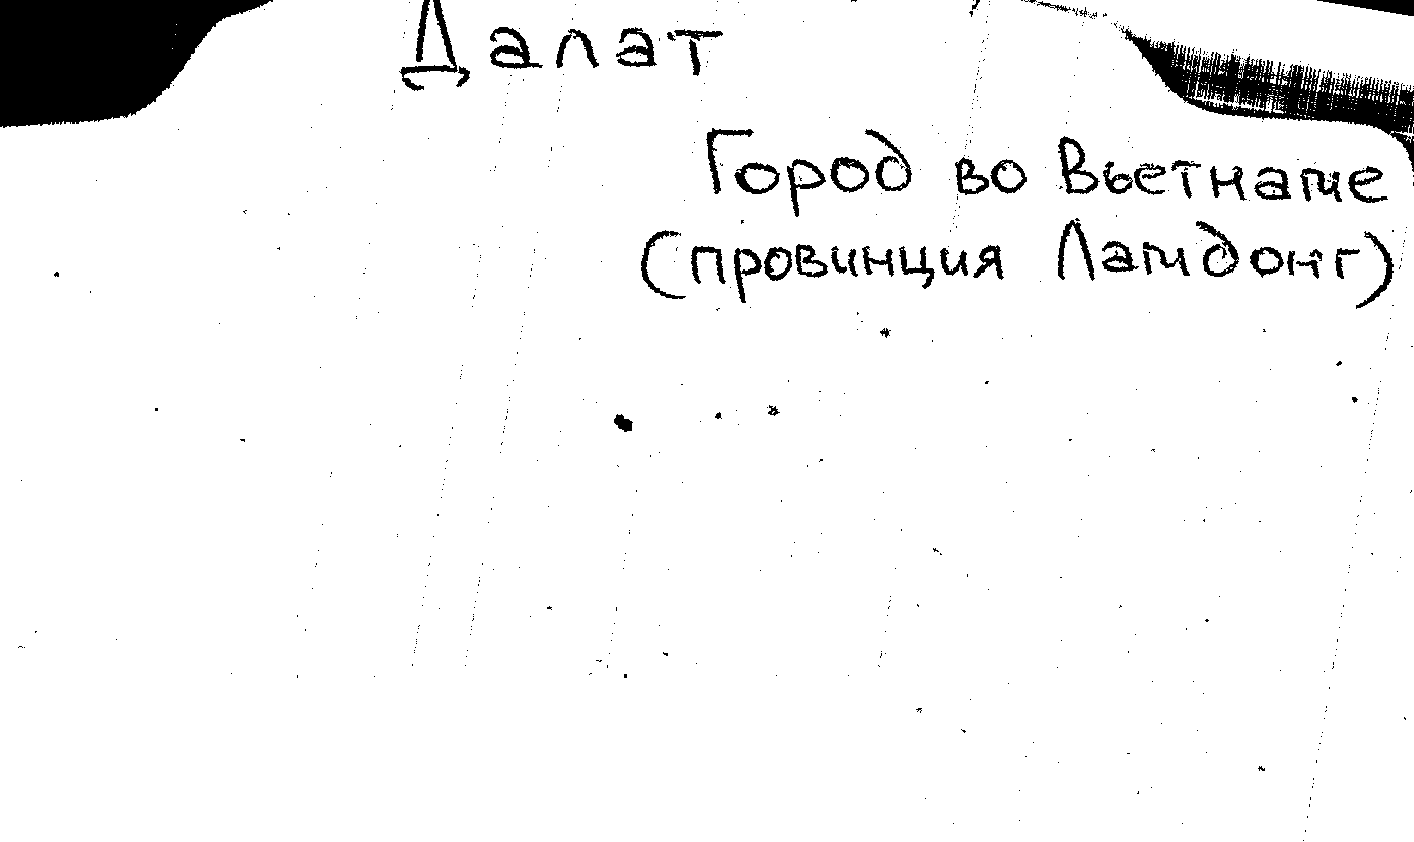 Далат
Город во Вьетнаме
(провинция Ламдонг)